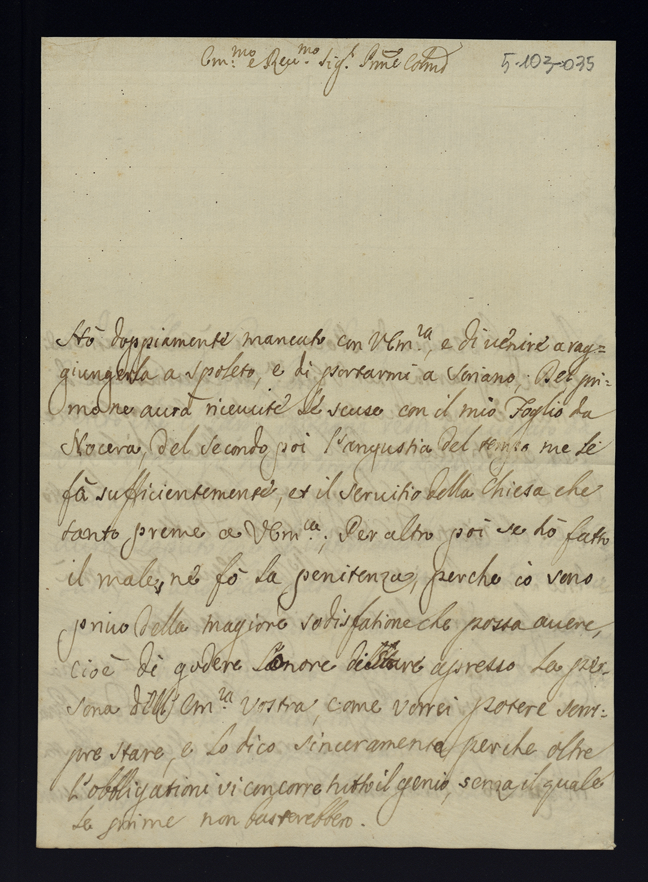 Em.mo e Reu.mo Sig.r Prne Colmo
5-103-035
Hò doppiamente mancato con VEm.za, e di venire a rag=
giungerla a Spoleto, e di portarmi a Soriano; Del pri=
mo ne aurà riceuute le scuse con il mio Foglio da
Nocera, del secondo poi l'angustia del tempo me le
fà sufficientemente, et il seruitio della Chiesa che
tanto preme a VEm.za; Per altro poi se hò fatto
il male, ne fò la penitenza, perche io sono
priuo della magiore sodisfatione che possa auere,
cioè di godere l'onore di stare apresso la per=
sona di Em.za Vostra, come vorrei potere sem=
pre stare, e lo dico sinceramente, perche oltre
l'obbligationi vi concorre tutto il genio, senza il quale
le prime non basterebbero.